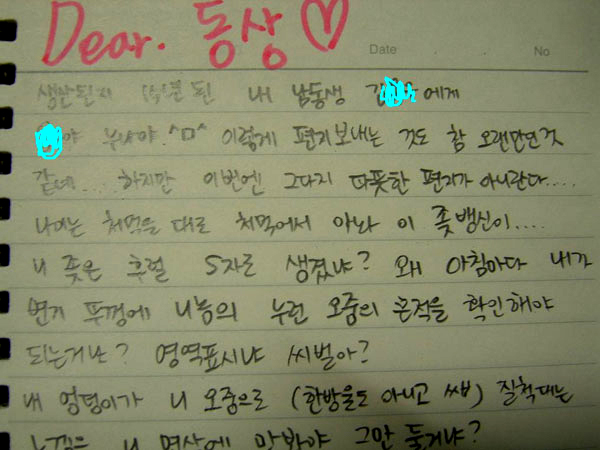 Dear. 동상♡
Date No
생산된지 된 내 남동생 김 에게
야 누나야.^ㅁ^ 이렇게 편지보내는 것도 참 오랜만인것
같네.... 하지만 이번엔 그다지 따뜻한 편지가 아니란다....
나이는 처먹을 대로 처먹어서 아놔 이 좆뱅신이....
니 좆은 후럴 S자로 생겼냐? 왜 아침마다 내가
변기 뚜껑에 니놈의 누런 오줌의 흔적을 확인해야
되는거냐? 영역표시냐 씨벌아?
내 엉덩이가 니 오줌으로 (한방울도 아니고 쌉) 질척대는
느낌은 니 면상에 맛봐야 그만 둘거냐?